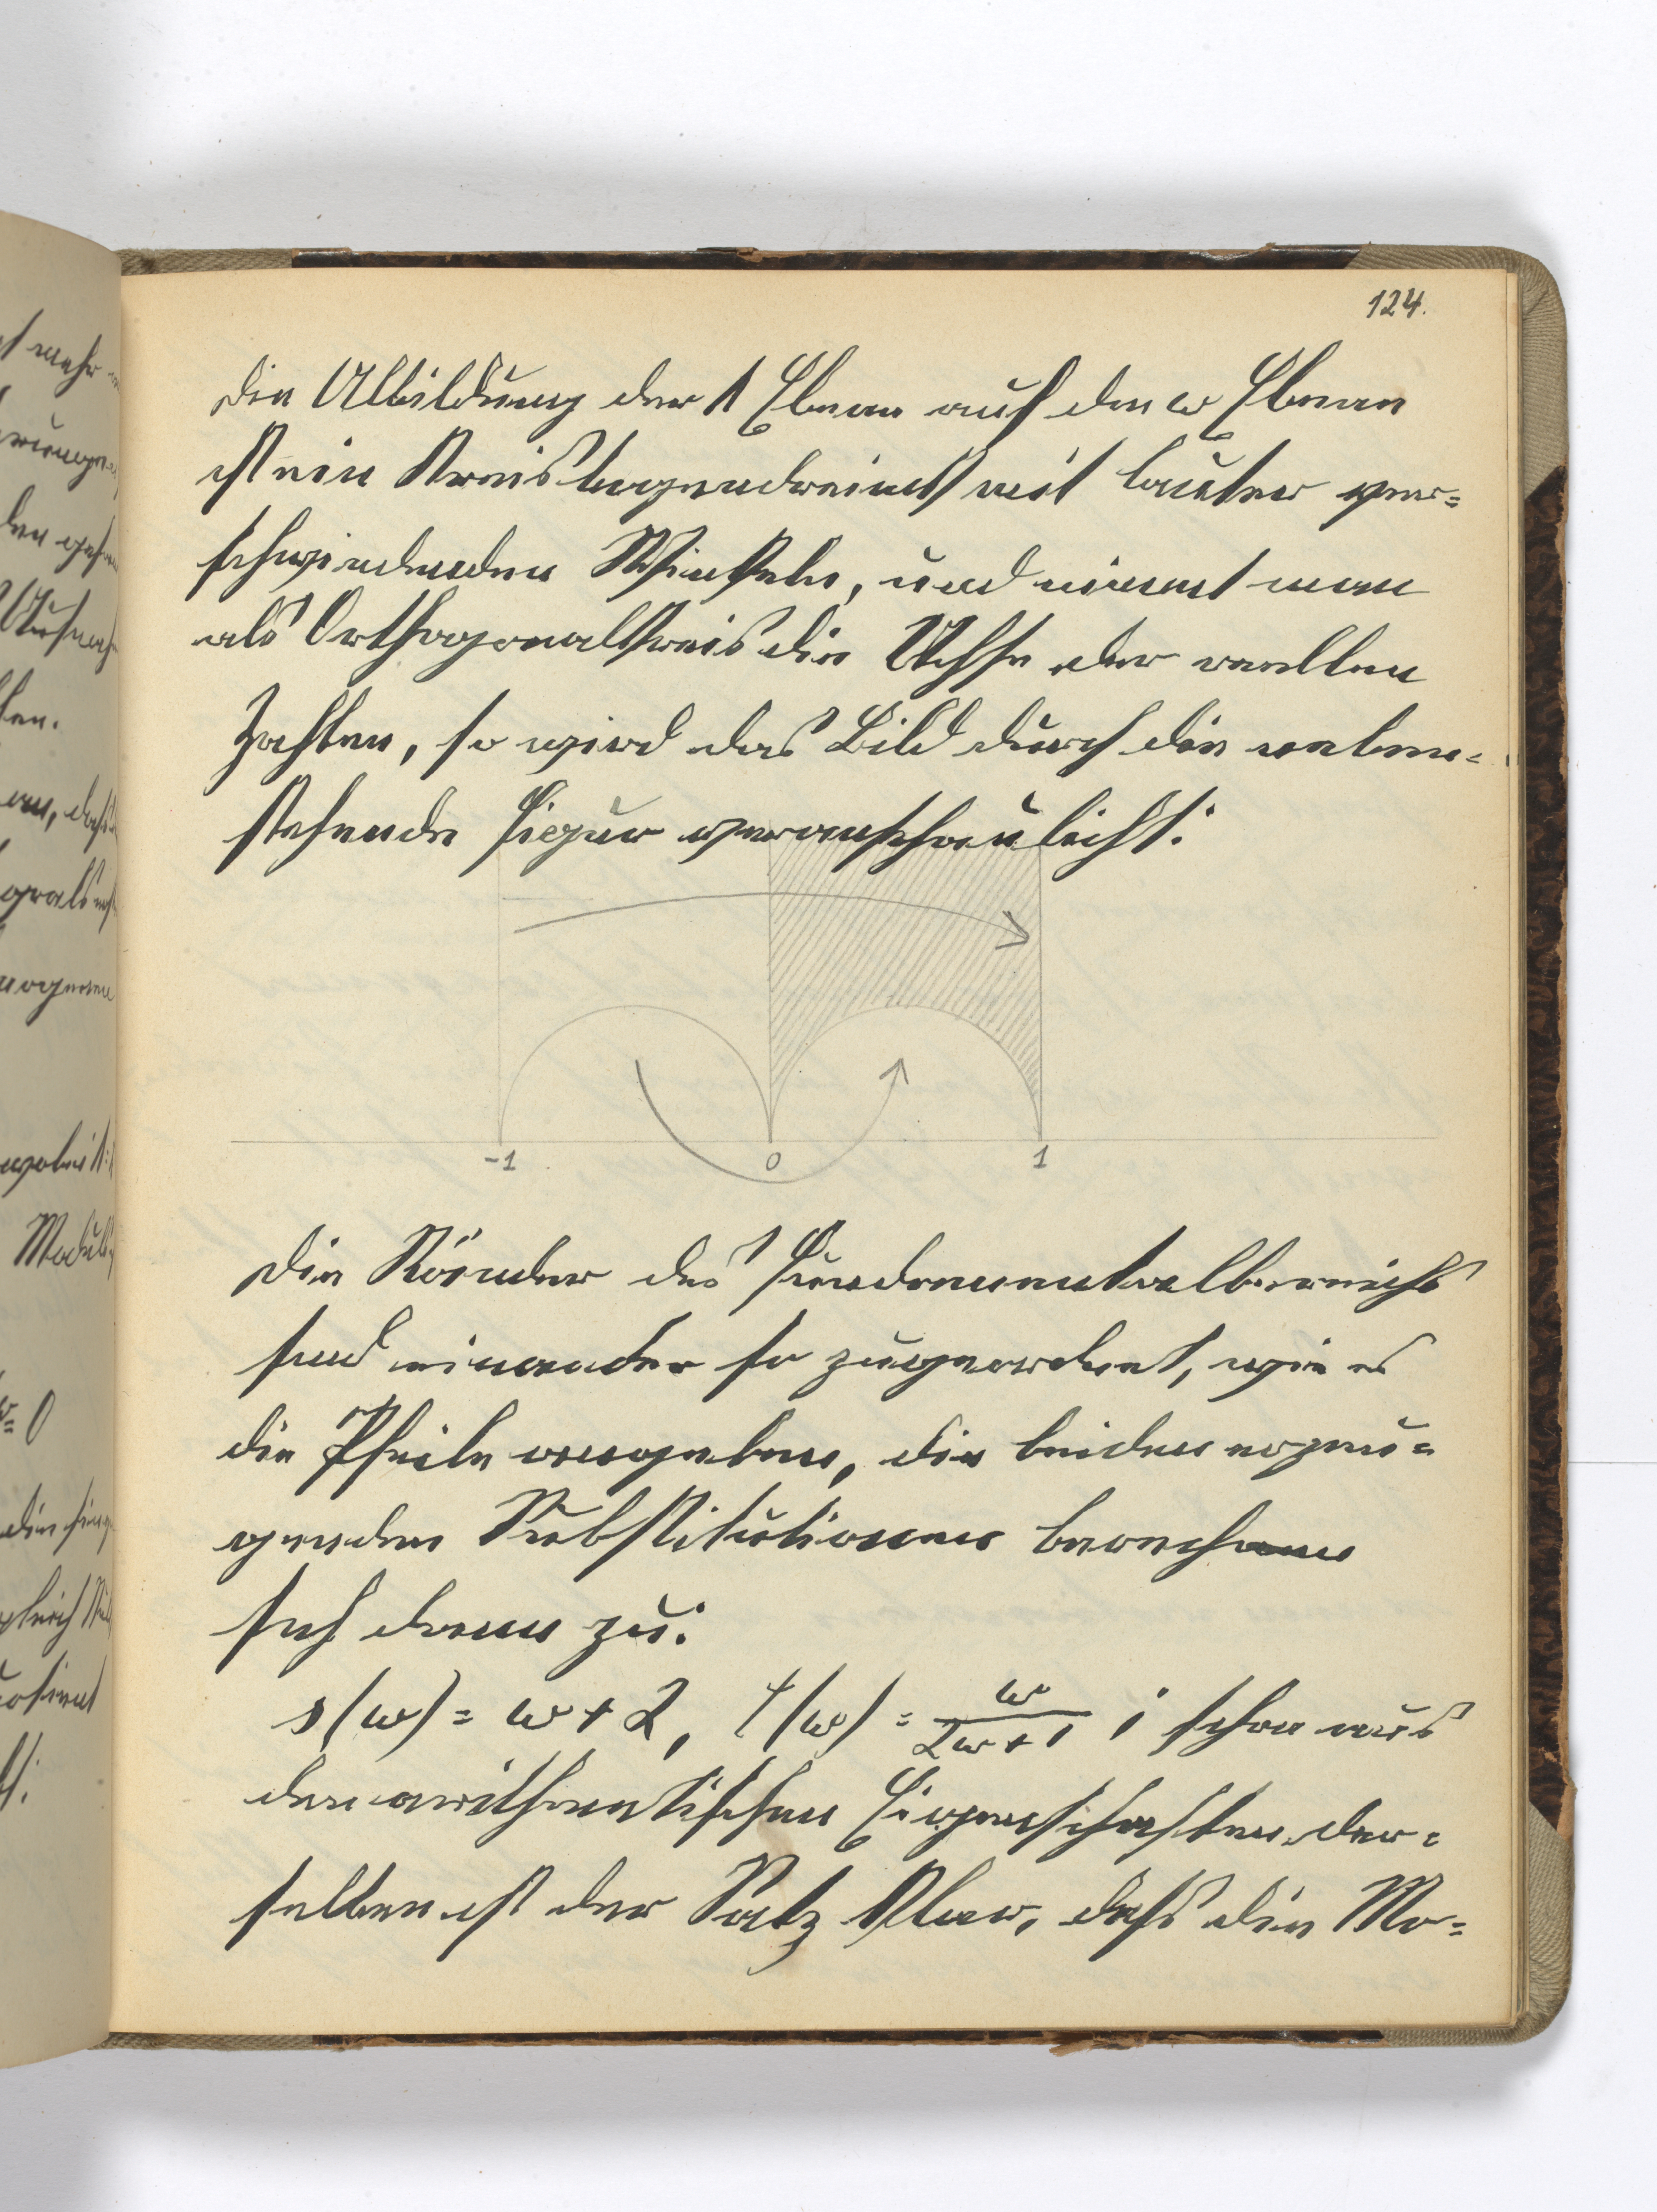 124.
Die Abbildung der λ Ebene auf die ω Ebene
ist ein Kreisbogendreieck mit lauter ver=
schwindenden Winkeln, und nimmt man
als Orthogonalkreis die Achse der reellen
Zahlen, so wird das Bild durch die neben=
stehende Figur veranschaulicht:
-1 0 1
Die Ränder des Fundamentalbereichs
sind einander so zugeordnet, wie es
die Pfeile angeben, die beiden erzeu=
genden Substitutionen berechnen
sich dann zu:
s(ω) = ω + 2, t(ω) = ω/(2ω+1); schon aus
den arithmetischen Eigenschaften der=
selben ist der Satz klar, daß die Mo=